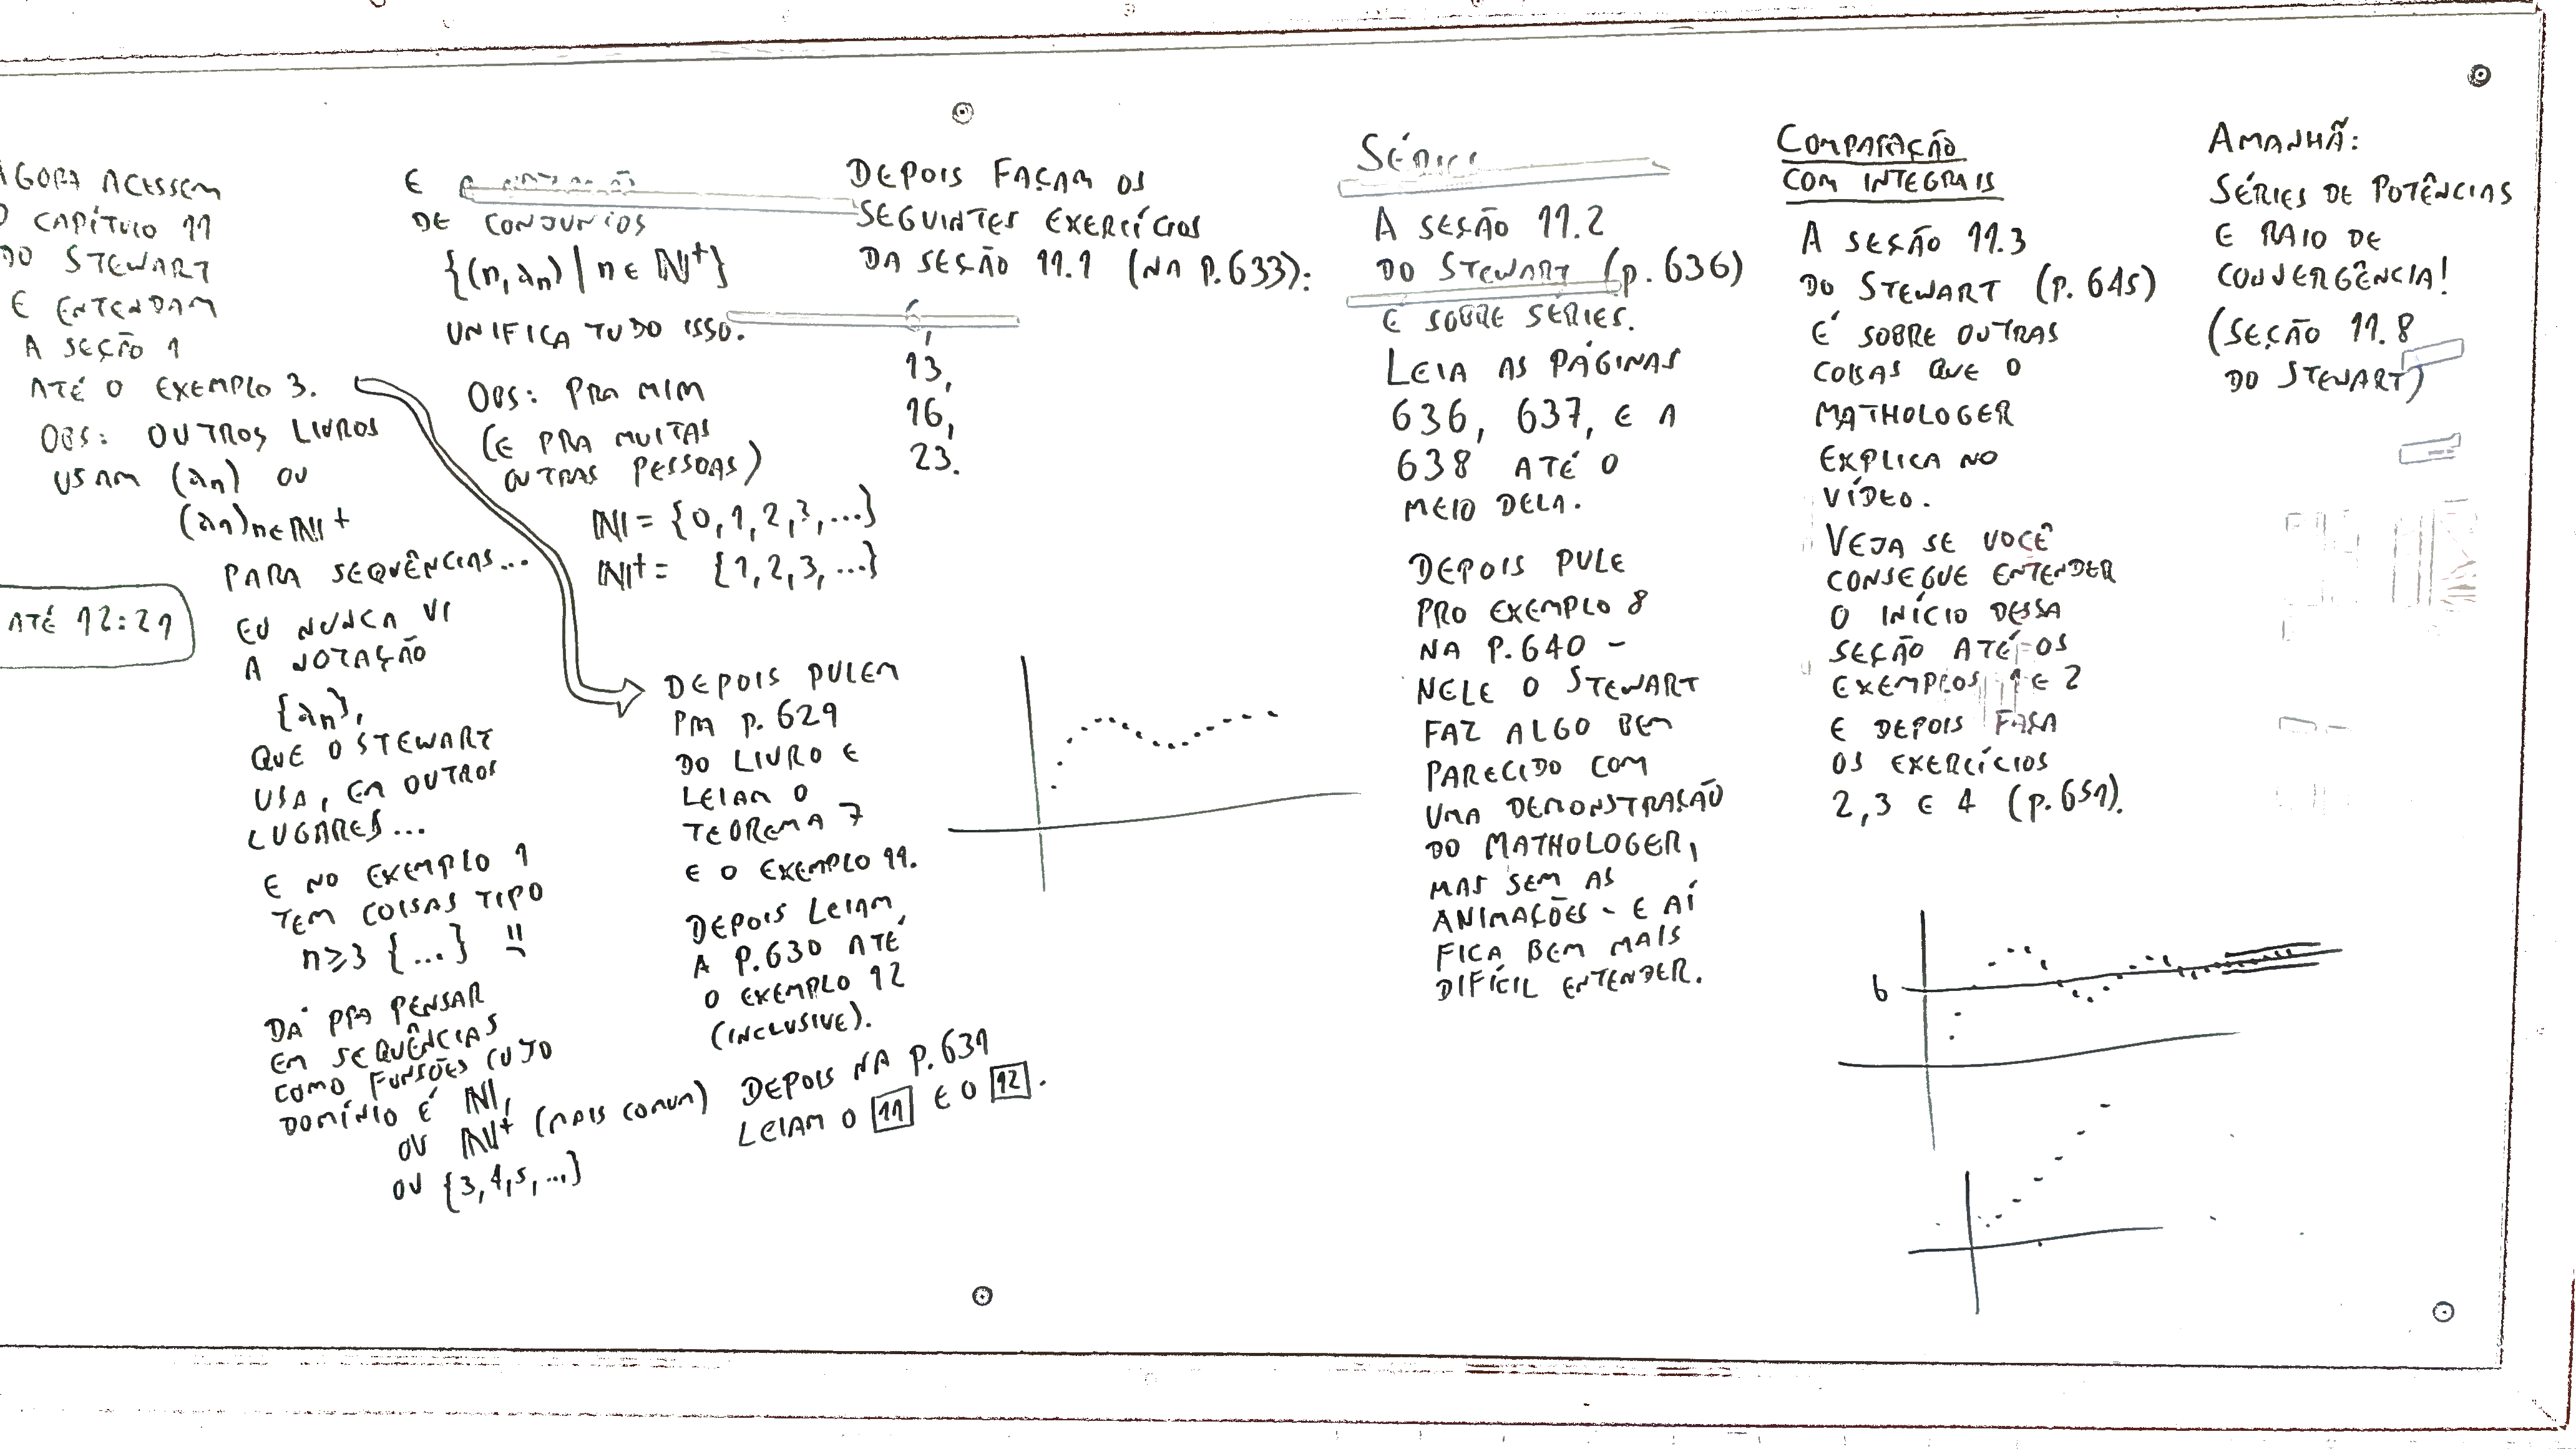 AGORA ACESSEM
O CAPÍTULO 11
DO STEWART
E ENTENDAM
A SEÇÃO 1
ATÉ O EXEMPLO 3.
OBS: OUTROS LIVROS
USAM (an) OU
(an)n∈ℕ+
PARA SEQUÊNCIAS...
ATÉ 12:21
EU NUNCA VI
A NOTAÇÃO
{an},
QUE O STEWART
USA, EM OUTROS
LUGARES...
E NO EXEMPLO 1
TEM COISAS TIPO
n≥3 {...} !!
DÁ PRA PENSAR
EM SEQUÊNCIAS
COMO FUNÇÕES CUJO
DOMÍNIO É ℕ,
OU ℕ+ (MAIS COMUM)
OU {3,4,5,...}
E A NOTAÇÃO
DE CONJUNTOS
{(n,an)|n∈ℕ+}
UNIFICA TUDO ISSO.
OBS: PRA MIM
(E PRA MUITAS
OUTRAS PESSOAS)
ℕ = {0,1,2,3,...}
ℕ+ = {1,2,3,...}
DEPOIS PULEM
PRA P. 629
DO LIVRO E
LEIAM O
TEOREMA 7
E O EXEMPLO 11.
DEPOIS LEIAM
A P.630 ATÉ
O EXEMPLO 12
(INCLUSIVE).
DEPOIS NA P.631
LEIAM O 11 E O 12.
DEPOIS FAÇAM OS
SEGUINTES EXERCÍCIOS
DA SEÇÃO 11.1 (NA P.633):
6,
13,
16,
23.
SÉRIES
A SEÇÃO 11.2
DO STEWART (p. 636)
É SOBRE SÉRIES.
LEIA AS PÁGINAS
636, 637, E A
638 ATÉ O
MEIO DELA.
DEPOIS PULE
PRO EXEMPLO 8
NA P.640 –
NELE O STEWART
FAZ ALGO BEM
PARECIDO COM
UMA DEMONSTRAÇÃO
DO MATHOLOGER,
MAS SEM AS
ANIMAÇÕES - E AÍ
FICA BEM MAIS
DIFÍCIL ENTENDER.
COMPARAÇÃO
COM INTEGRAIS
A SEÇÃO 11.3
DO STEWART (P. 645)
É SOBRE OUTRAS
COISAS QUE O
MATHOLOGER
EXPLICA NO
VÍDEO.
VEJA SE VOCÊ
CONSEGUE ENTENDER
O INÍCIO DESSA
SEÇÃO ATÉ OS
EXEMPLOS 1 E 2
E DEPOIS FAÇA
OS EXERCÍCIOS
2,3 E 4 (p.651).
b
AMANHÃ:
SÉRIES DE POTÊNCIAS
E RAIO DE
CONVERGÊNCIA!
(SEÇÃO 11.8
DO STEWART)